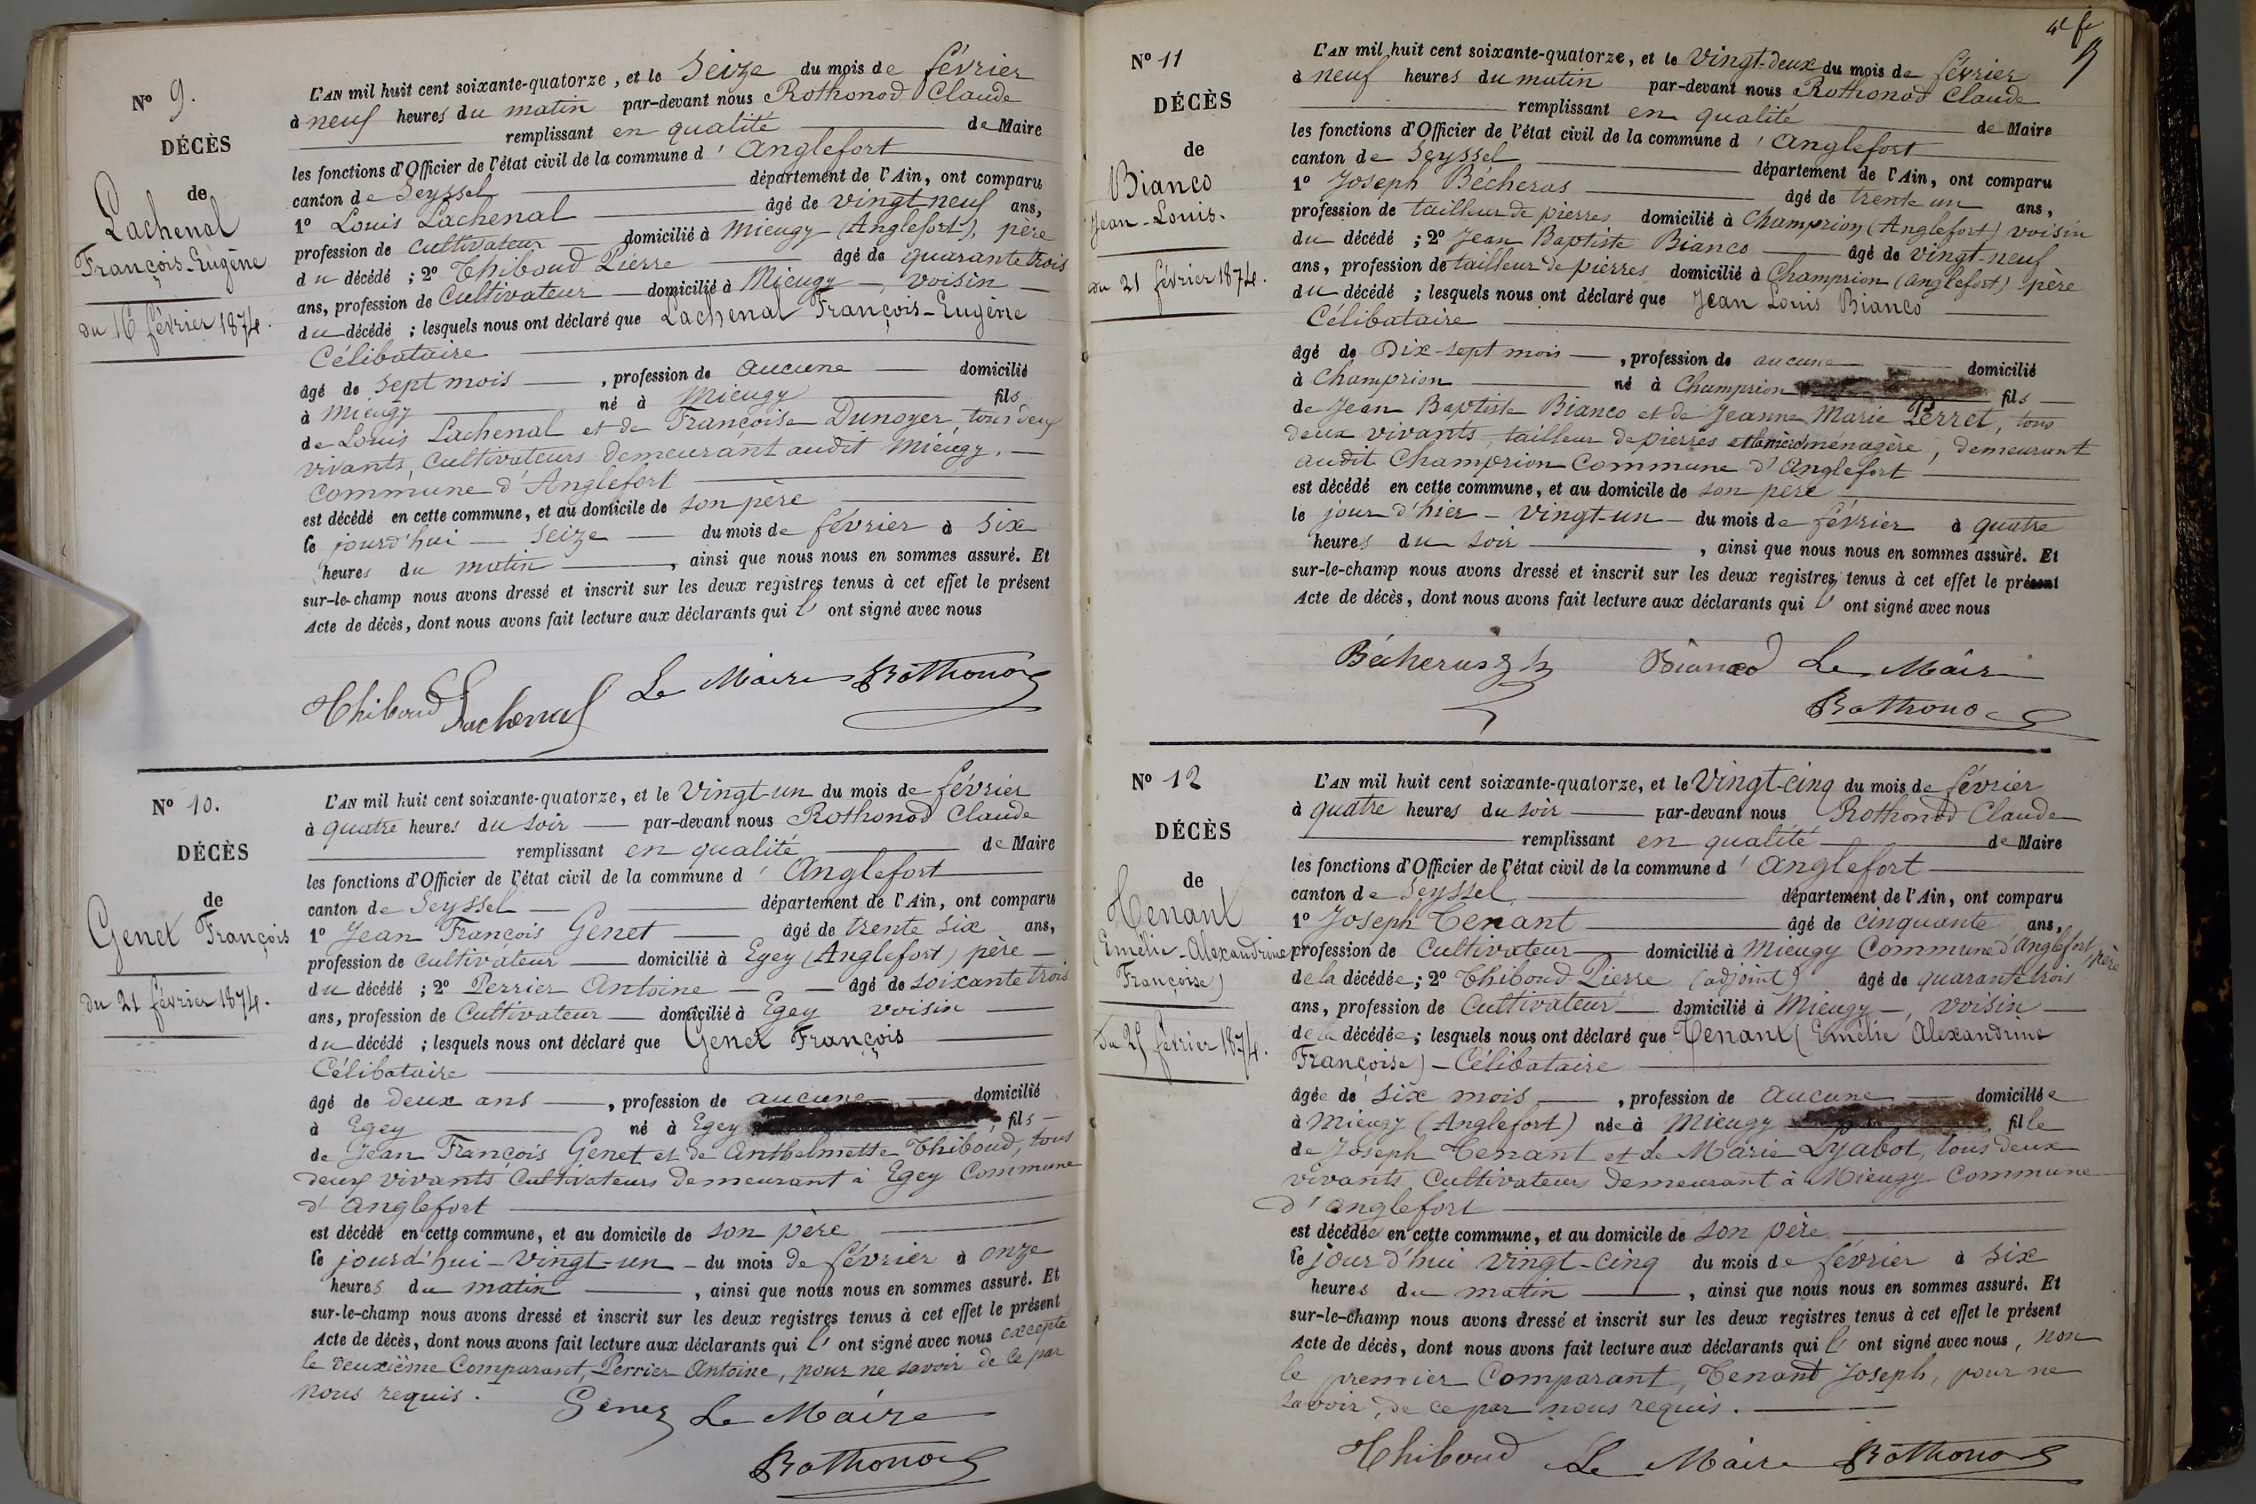 N° 9.
DÉCÈS
de
Lachenal
François-Eugène
du 16 février 1874.
L'AN mil huit cent soixante-quatorze, et le Seize du mois de février
à neuf heures du matin par-devant nous Rothonod Claude
remplissant en qualité de Maire
les fonctions d'Officier de l'état civil de la commune d'Anglefort
canton de Seyssel département de l'Ain, ont comparu
1° Louis Lachenal âgé de vingt neuf ans,
profession de cultivateur domicilié à Mieugy (Anglefort), père
du décédé ; 2° Thiboud Pierre âgé de quarante trois
ans, profession de Cultivateur domicilié à Mieugy, voisin
du décédé ; lesquels nous ont déclaré que Lachenal François-Eugène
Célibataire
âgé de Sept mois, profession de aucune domicilié
à Mieugy né à Mieugy fils
de Louis Lachenal et de Françoise Dunoyer, tous deux
vivants, Cultivateurs demeurant audit Mieugy.
Commune d'Anglefort
est décédé en cette commune, et au domicile de son père
le jourd'hui seize du mois de février à Six
heures du matin, ainsi que nous nous en sommes assuré. Et
sur-le-champ nous avons dressé et inscrit sur les deux registres tenus à cet effet le présent
Acte de décès, dont nous avons fait lecture aux déclarants qui l'ont signé avec nous
Thiboud Lachenal Le Maire Rothonod
N° 10.
DÉCÈS
de
Genet François
du 21 février 1874.
L'AN mil huit cent soixante-quatorze, et le Vingt-un du mois de février
à quatre heures du soir par-devant nous Rothonod Claude
remplissant en qualité de Maire
les fonctions d'Officier de l'état civil de la commune d'Anglefort
canton de Seyssel département de l'Ain, ont comparu
1° Jean François Genet âgé de trente six ans,
profession de cultivateur domicilié à Egey (Anglefort) père
du décédé ; 2° Perrier Antoine âgé de soixante trois
ans, profession de Cultivateur domicilié à Egey voisin
du décédé ; lesquels nous ont déclaré que Genet François
Célibataire
âgé de deux ans, profession de aucune domicilié
à Egey né à Egey fils
de Jean François Genet et de Anthelmette Thiboud, tous
deux vivants Cultivateurs demeurant à Egey Commune
d'Anglefort
est décédé en cette commune, et au domicile de son père
le jourd'hui - vingt-un - du mois de février à onze
heures du matin, ainsi que nous nous en sommes assuré. Et
sur-le-champ nous avons dressé et inscrit sur les deux registres tenus à cet effet le présent
Acte de décès, dont nous avons fait lecture aux déclarants qui l'ont signé avec nous excepté
le deuxième Comparant, Perrier Antoine, pour ne savoir de ce par
nous requis.
Genet Le Maire
Rothonod
N° 11
DÉCÈS
de
Bianco
Jean-Louis.
du 21 février 1874.
L'AN mil huit cent soixante-quatorze, et le Vingt-deux du mois de février
à neuf heures du matin par-devant nous Rothonod Claude
remplissant en qualité de Maire
les fonctions d'Officier de l'état civil de la commune d'Anglefort
canton de Seyssel département de l'Ain, ont comparu
1° Joseph Bécheras âgé de trente un ans,
profession de tailleur de pierres domicilié à Champrion (Anglefort) voisin
du décédé ; 2° Jean Baptiste Bianco âgé de vingt-neuf
ans, profession de tailleur de pierres domicilié à Champrion (Anglefort) père
du décédé ; lesquels nous ont déclaré que Jean Louis Bianco
Célibataire
âgé de Dix-sept mois, profession de aucune domicilié
à Champrion né à Champrion fils
de Jean Baptiste Bianco et de Jeanne Marie Perret, tous
deux vivants, tailleur de pierres et la mère ménagère, demeurant
audit Champrion Commune d'Anglefort
est décédé en cette commune, et au domicile de son père
le jour d'hier - vingt-un - du mois de février à quatre
heures du soir, ainsi que nous nous en sommes assuré. Et
sur-le-champ nous avons dressé et inscrit sur les deux registres tenus à cet effet le présent
Acte de décès, dont nous avons fait lecture aux déclarants qui l'ont signé avec nous
Bécheras Bianco Le Maire
Rothonod
N° 12
DÉCÈS
de
Tenant
(Emélie-Alexandrine
Françoise)
du 25 février 1874.
L'AN mil huit cent soixante-quatorze, et le Vingt-cinq du mois de février
à quatre heures du soir par-devant nous Rothonod Claude
remplissant en qualité de Maire
les fonctions d'Officier de l'état civil de la commune d'Anglefort
canton de Seyssel département de l'Ain, ont comparu
1° Joseph Tenant âgé de cinquante ans,
profession de Cultivateur domicilié à Mieugy Commune d'Anglefort, père
de la décédée ; 2° Thiboud Pierre (adjoint) âgé de quarante trois
ans, profession de Cultivateur domicilié à Mieugy, voisin
de la décédée ; lesquels nous ont déclaré que Tenant (Emélie Alexandrine
Françoise) - Célibataire
âgée de six mois, profession de aucune domiciliée
à Mieugy (Anglefort) née à Mieugy fille
de Joseph Tenant et de Marie Lyabot, tous deux
vivants Cultivateurs demeurant à Mieugy Commune
d'Anglefort
est décédée en cette commune, et au domicile de son père
le jour d'hui vingt-cinq du mois de février à six
heures du matin, ainsi que nous nous en sommes assuré. Et
sur-le-champ nous avons dressé et inscrit sur les deux registres tenus à cet effet le présent
Acte de décès, dont nous avons fait lecture aux déclarants qui l'ont signé avec nous, non
le premier Comparant, Tenand Joseph, pour ne
savoir, de ce par nous requis.
Thiboud Le Maire Rothonod